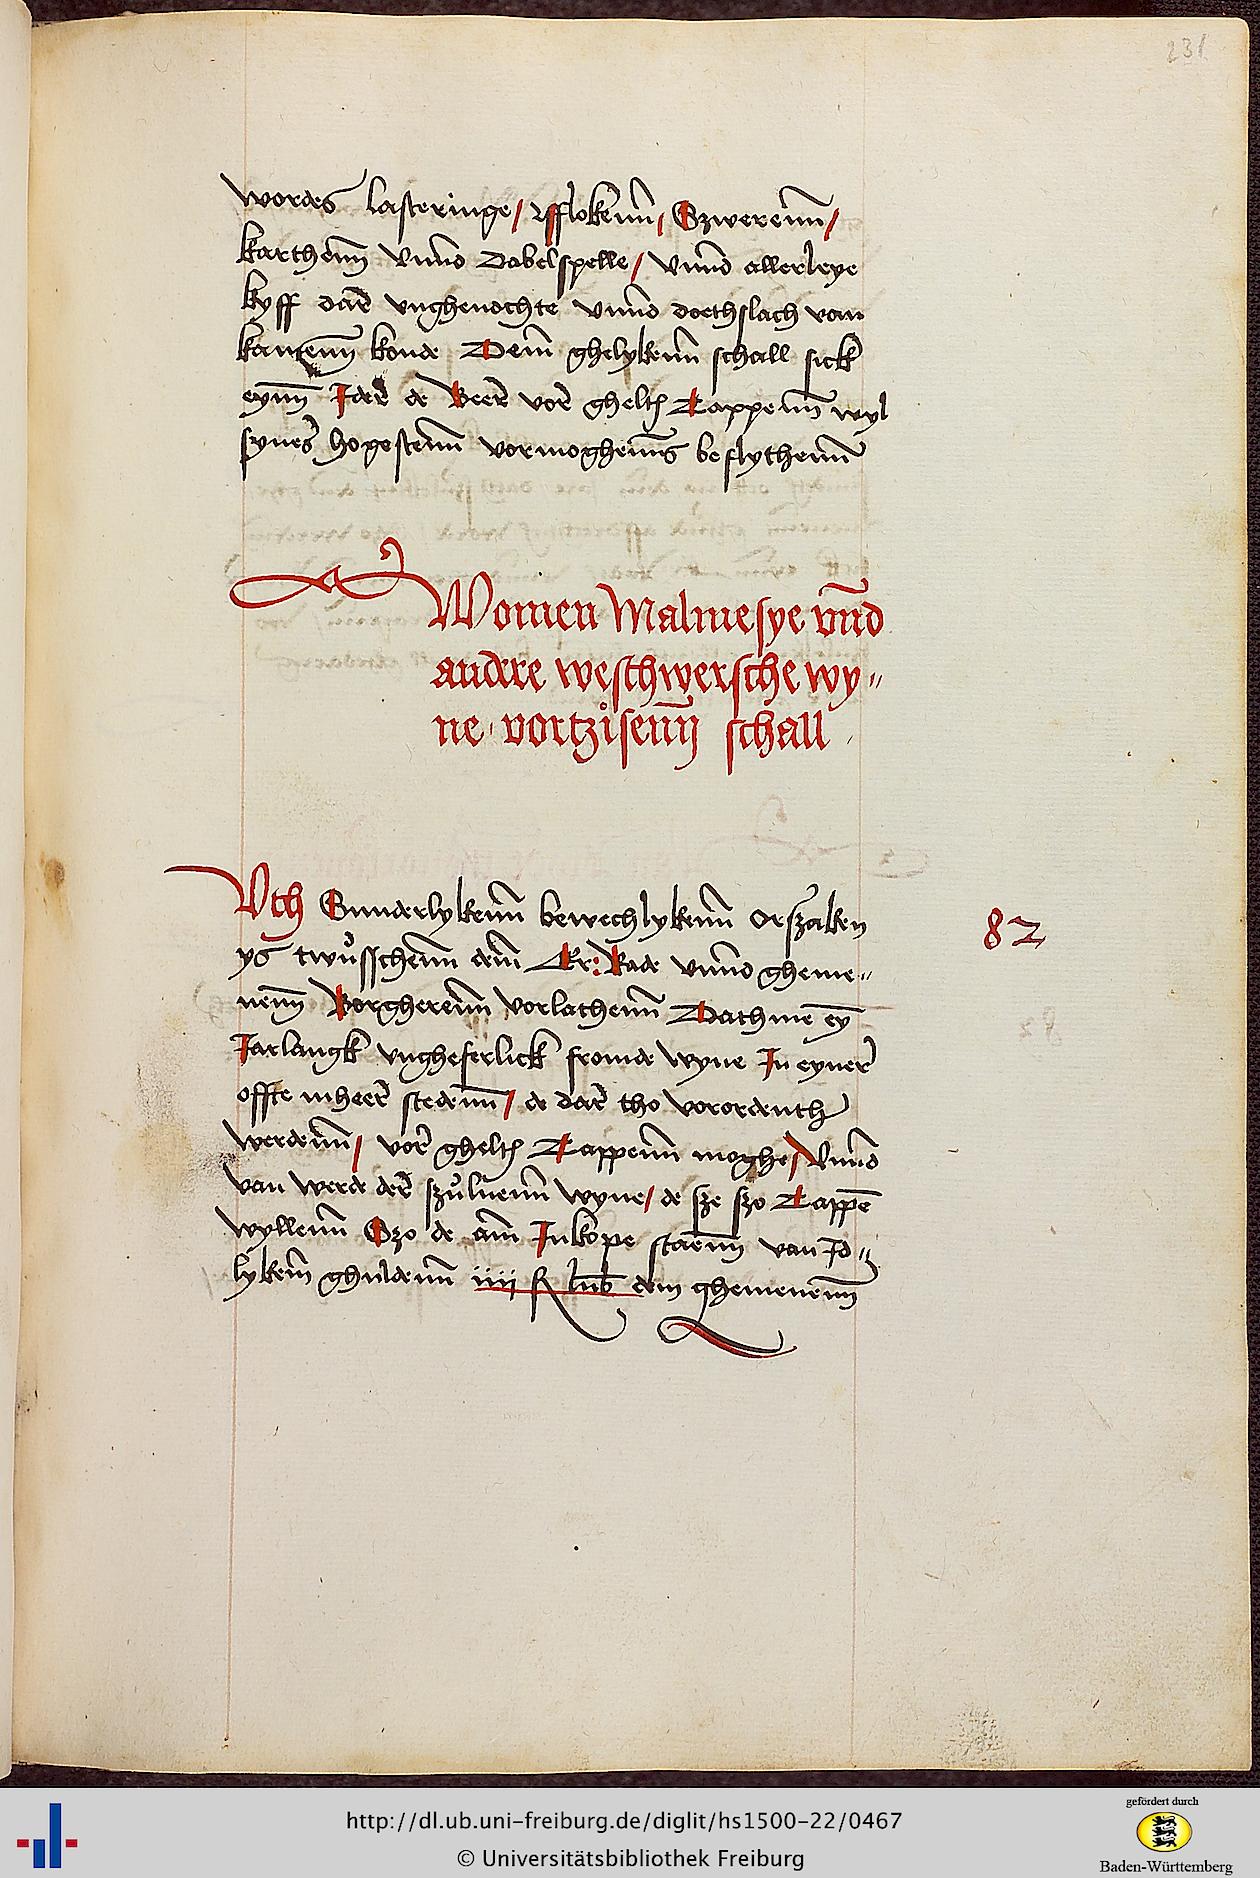 231
wordes lasteringe / vfflokenn̄ / Szwerenn̄ /
karthenn̄ vnnd Dabelspelle / vnnd allerleye
kyff dar̄ vnghenochte vnnd doethslach van
kamenn̄ konde Dem̄ ghelykenn̄ schall sick
eynn̄ Ider̄ de Beer̄ vor̄ ghelt Tappenn̄ wyl
synes hogestenn̄ vormoghenn̄s beflythenn̄
Women Malmesye vn̄d
andre weschwersche wy〃
ne vortzisenn̄ schall
Vth Sunderlykenn̄ bewechlykenn̄ Orszaken 82
ys twůsschenn̄ dem̄ Er: Rade vnnd gheme〃
nenn̄ Borgherenn̄ vorlathenn̄ Dathme ey̅
Jarlangk vngheferlick fromde wyne In eyner
offte mheer̄ stedenn̄ / de dar̄ tho vorordenth
werdenn̄ / vor̄ ghelt Tappenn̄ moghe / vnnd
van werde der̄ szůluenn̄ wyne / de sze szo Tappē
wyllenn̄ Szo de am̄ Inkope staenn̄ van Id〃
lykem̄ ghuldenn̄ iiij ß lub̄ dem ghemenenn̄
http://dl.ub.uni-freiburg.de/diglit/hs1500-22/0467
© Universitätsbibliothek Freiburg
gefördert durch
Baden-Württemberg